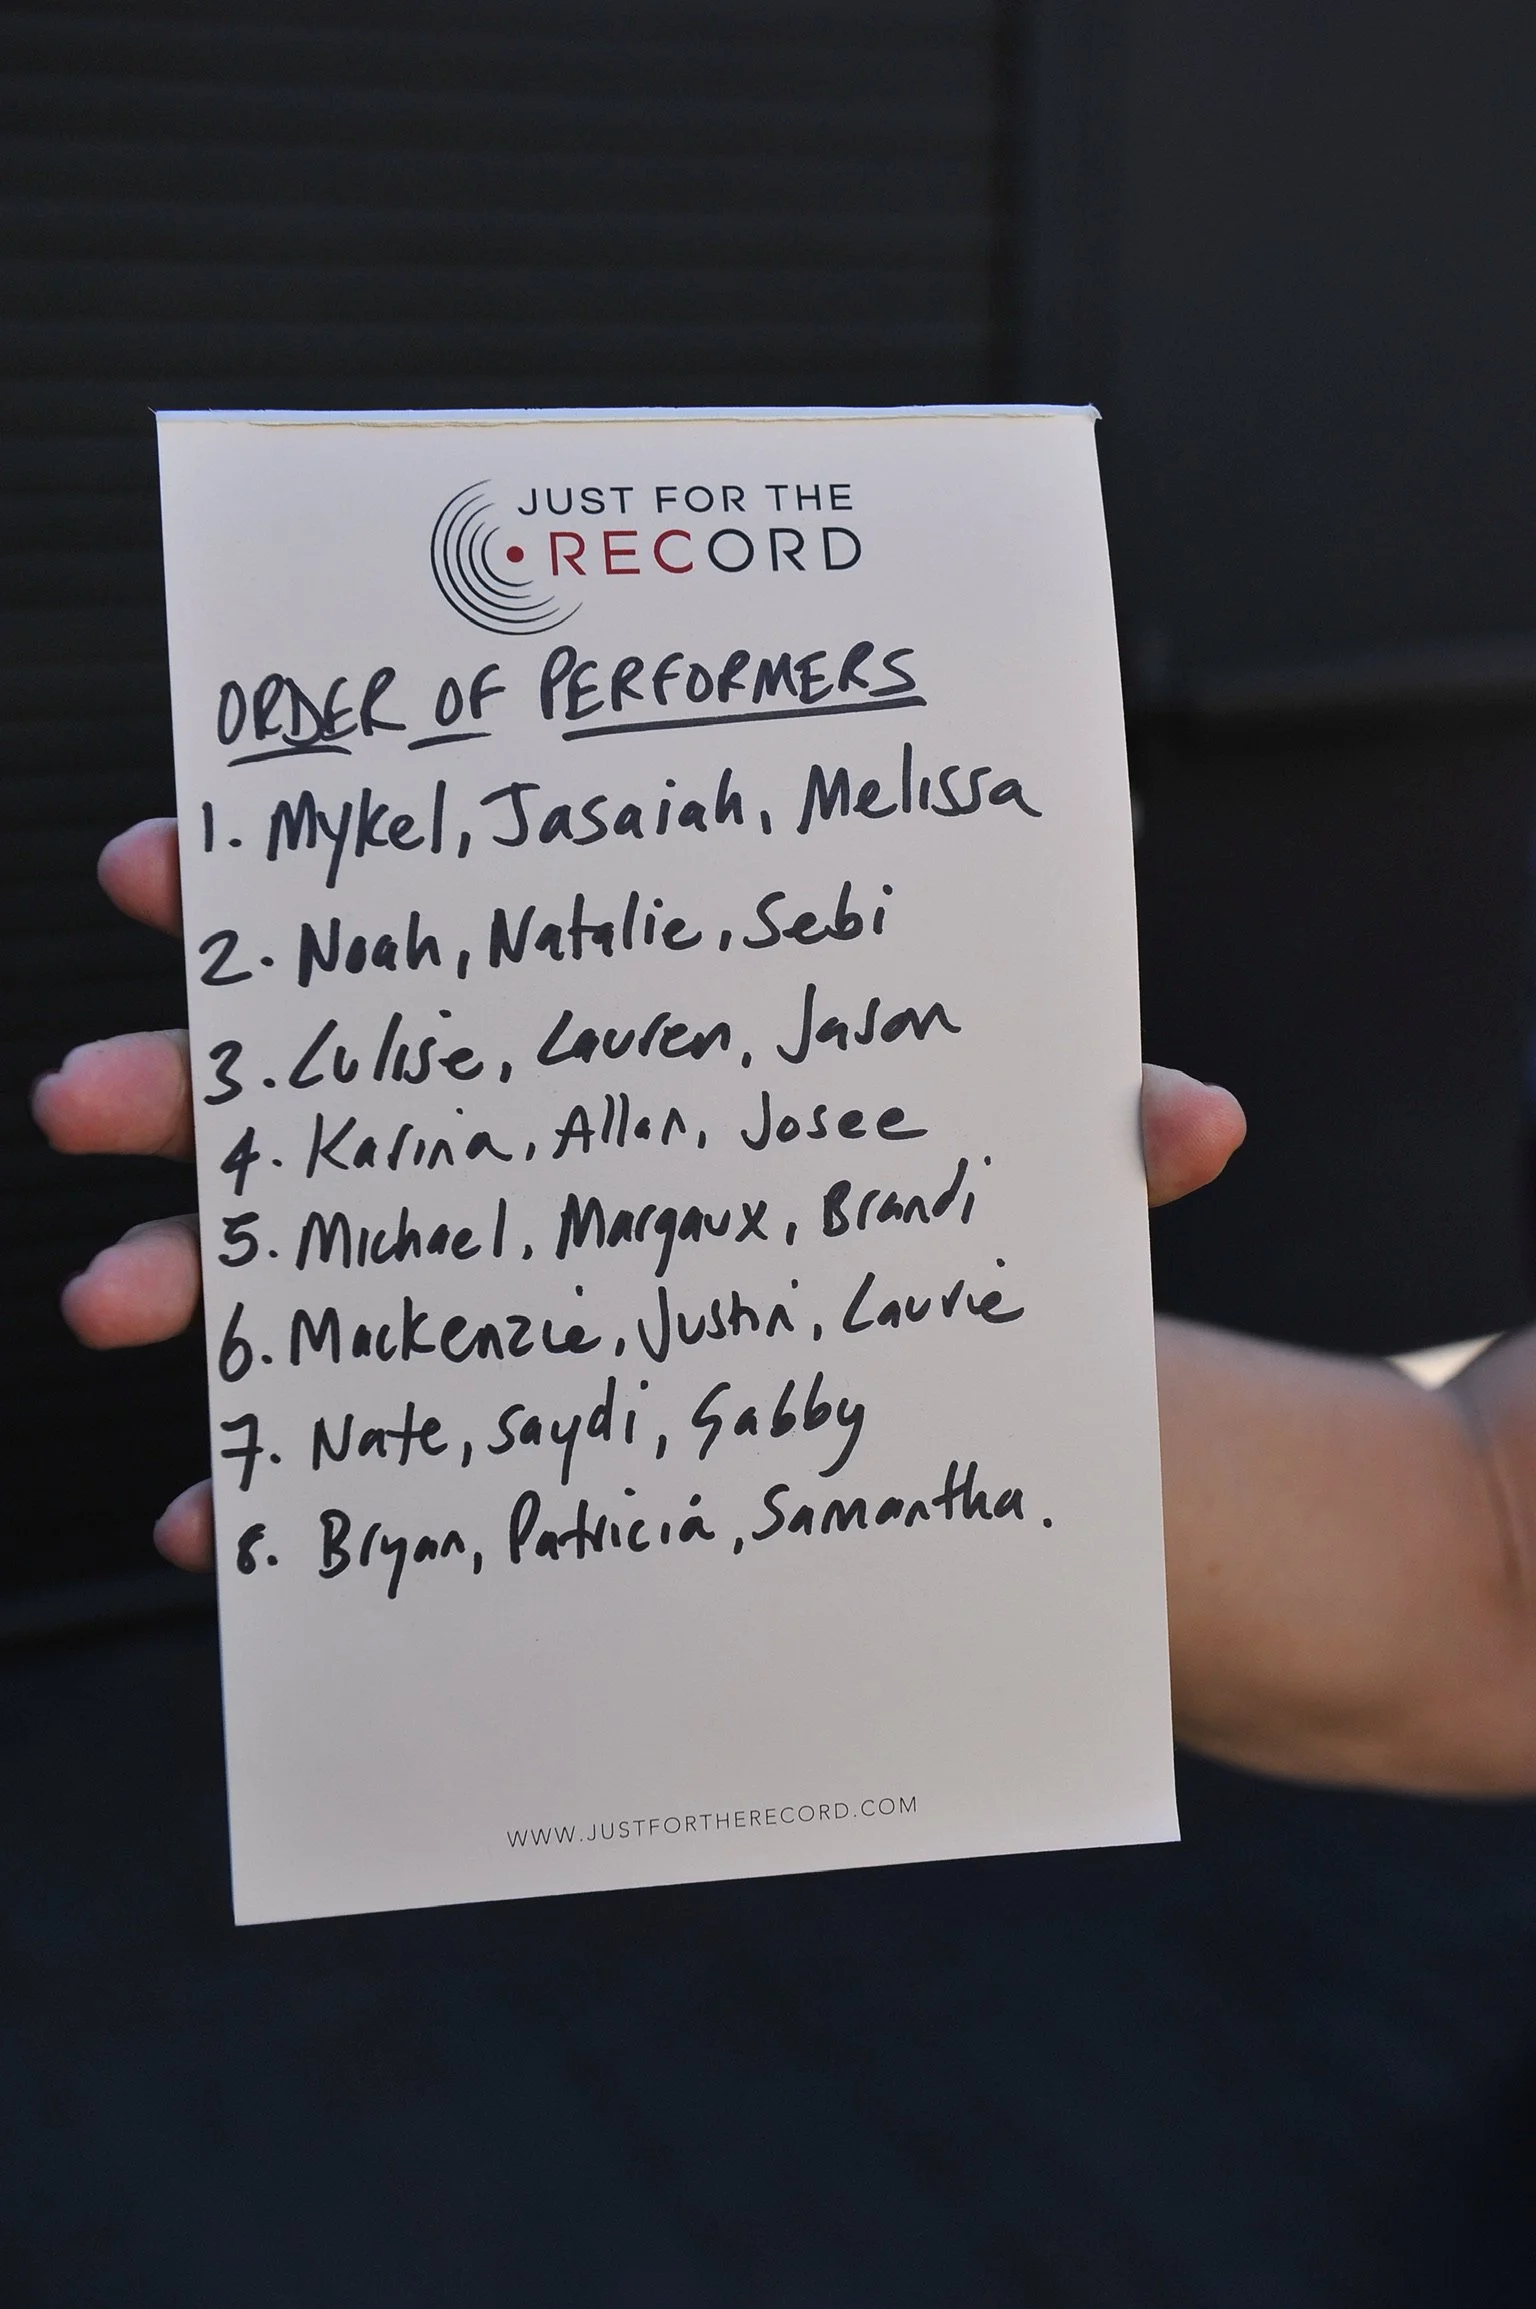 JUST FOR THE
RECORD
ORDER OF PERFORMERS
1. Mykel, Jasaiah, Melissa
2. Noah, Natalie, Sebi
3. Lulise, Lauren, Jason
4. Karina, Allan, Josee
5. Michael, Margaux, Brandi
6. Mackenzie, Justin, Laurie
7. Nate, Saydi, Gabby
8. Bryan, Patricia, Samantha.
WWW.JUSTFORTHERECORD.COM